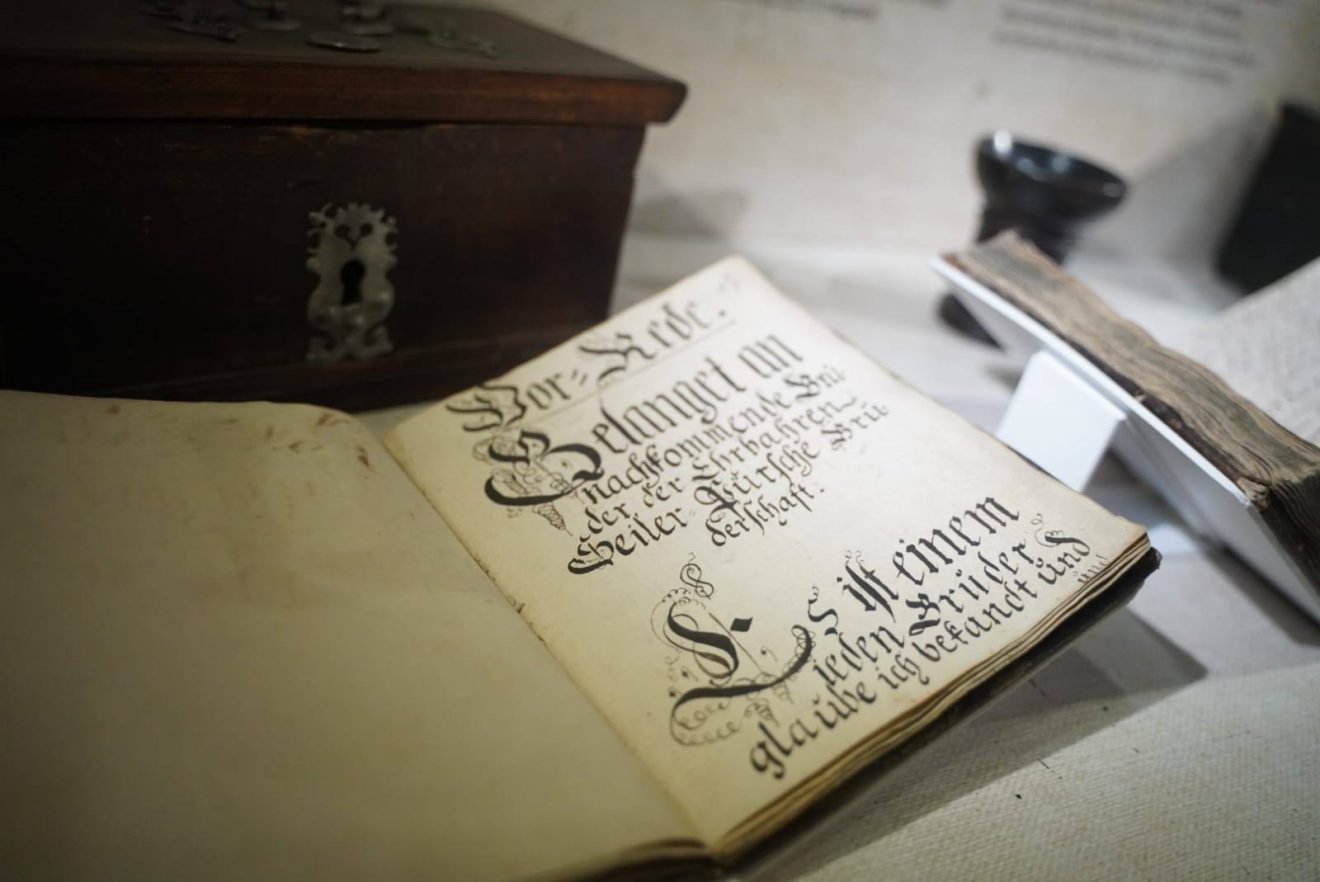 Vor=Rede.
Belanget an
nachkommende Brü
der der Ehrbahren
Seiler=Pürsche Brü
derschaft:
Es ist einem
ieden Brüder
glaübe ich bekandt ünd
ünd